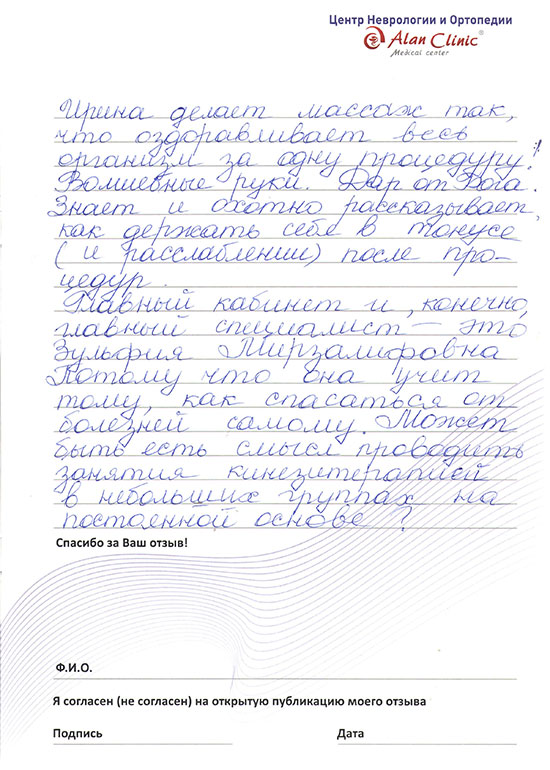 Центр Неврологии и Ортопедии
Alan Clinic®
Medical center
Ирина делает массаж так,
что оздоравливает весь
организм за одну процедуру!
Волшебные руки. Дар от Бога.
Знает и охотно рассказывает,
как держать себя в тонусе
(и расслаблении) после про-
цедур.
Главный кабинет и, конечно,
главный специалист — это
Зульфия Мирзалифовна
Потому что она учит
тому, как спасаться от
болезней самому. Может
быть есть смысл проводить
занятия кинезитерапией
в небольших группах на
постоенной основе?
Спасибо за Ваш отзыв!
Ф.И.О.
Я согласен (не согласен) на открытую публикацию моего отзыва
Подпись Дата